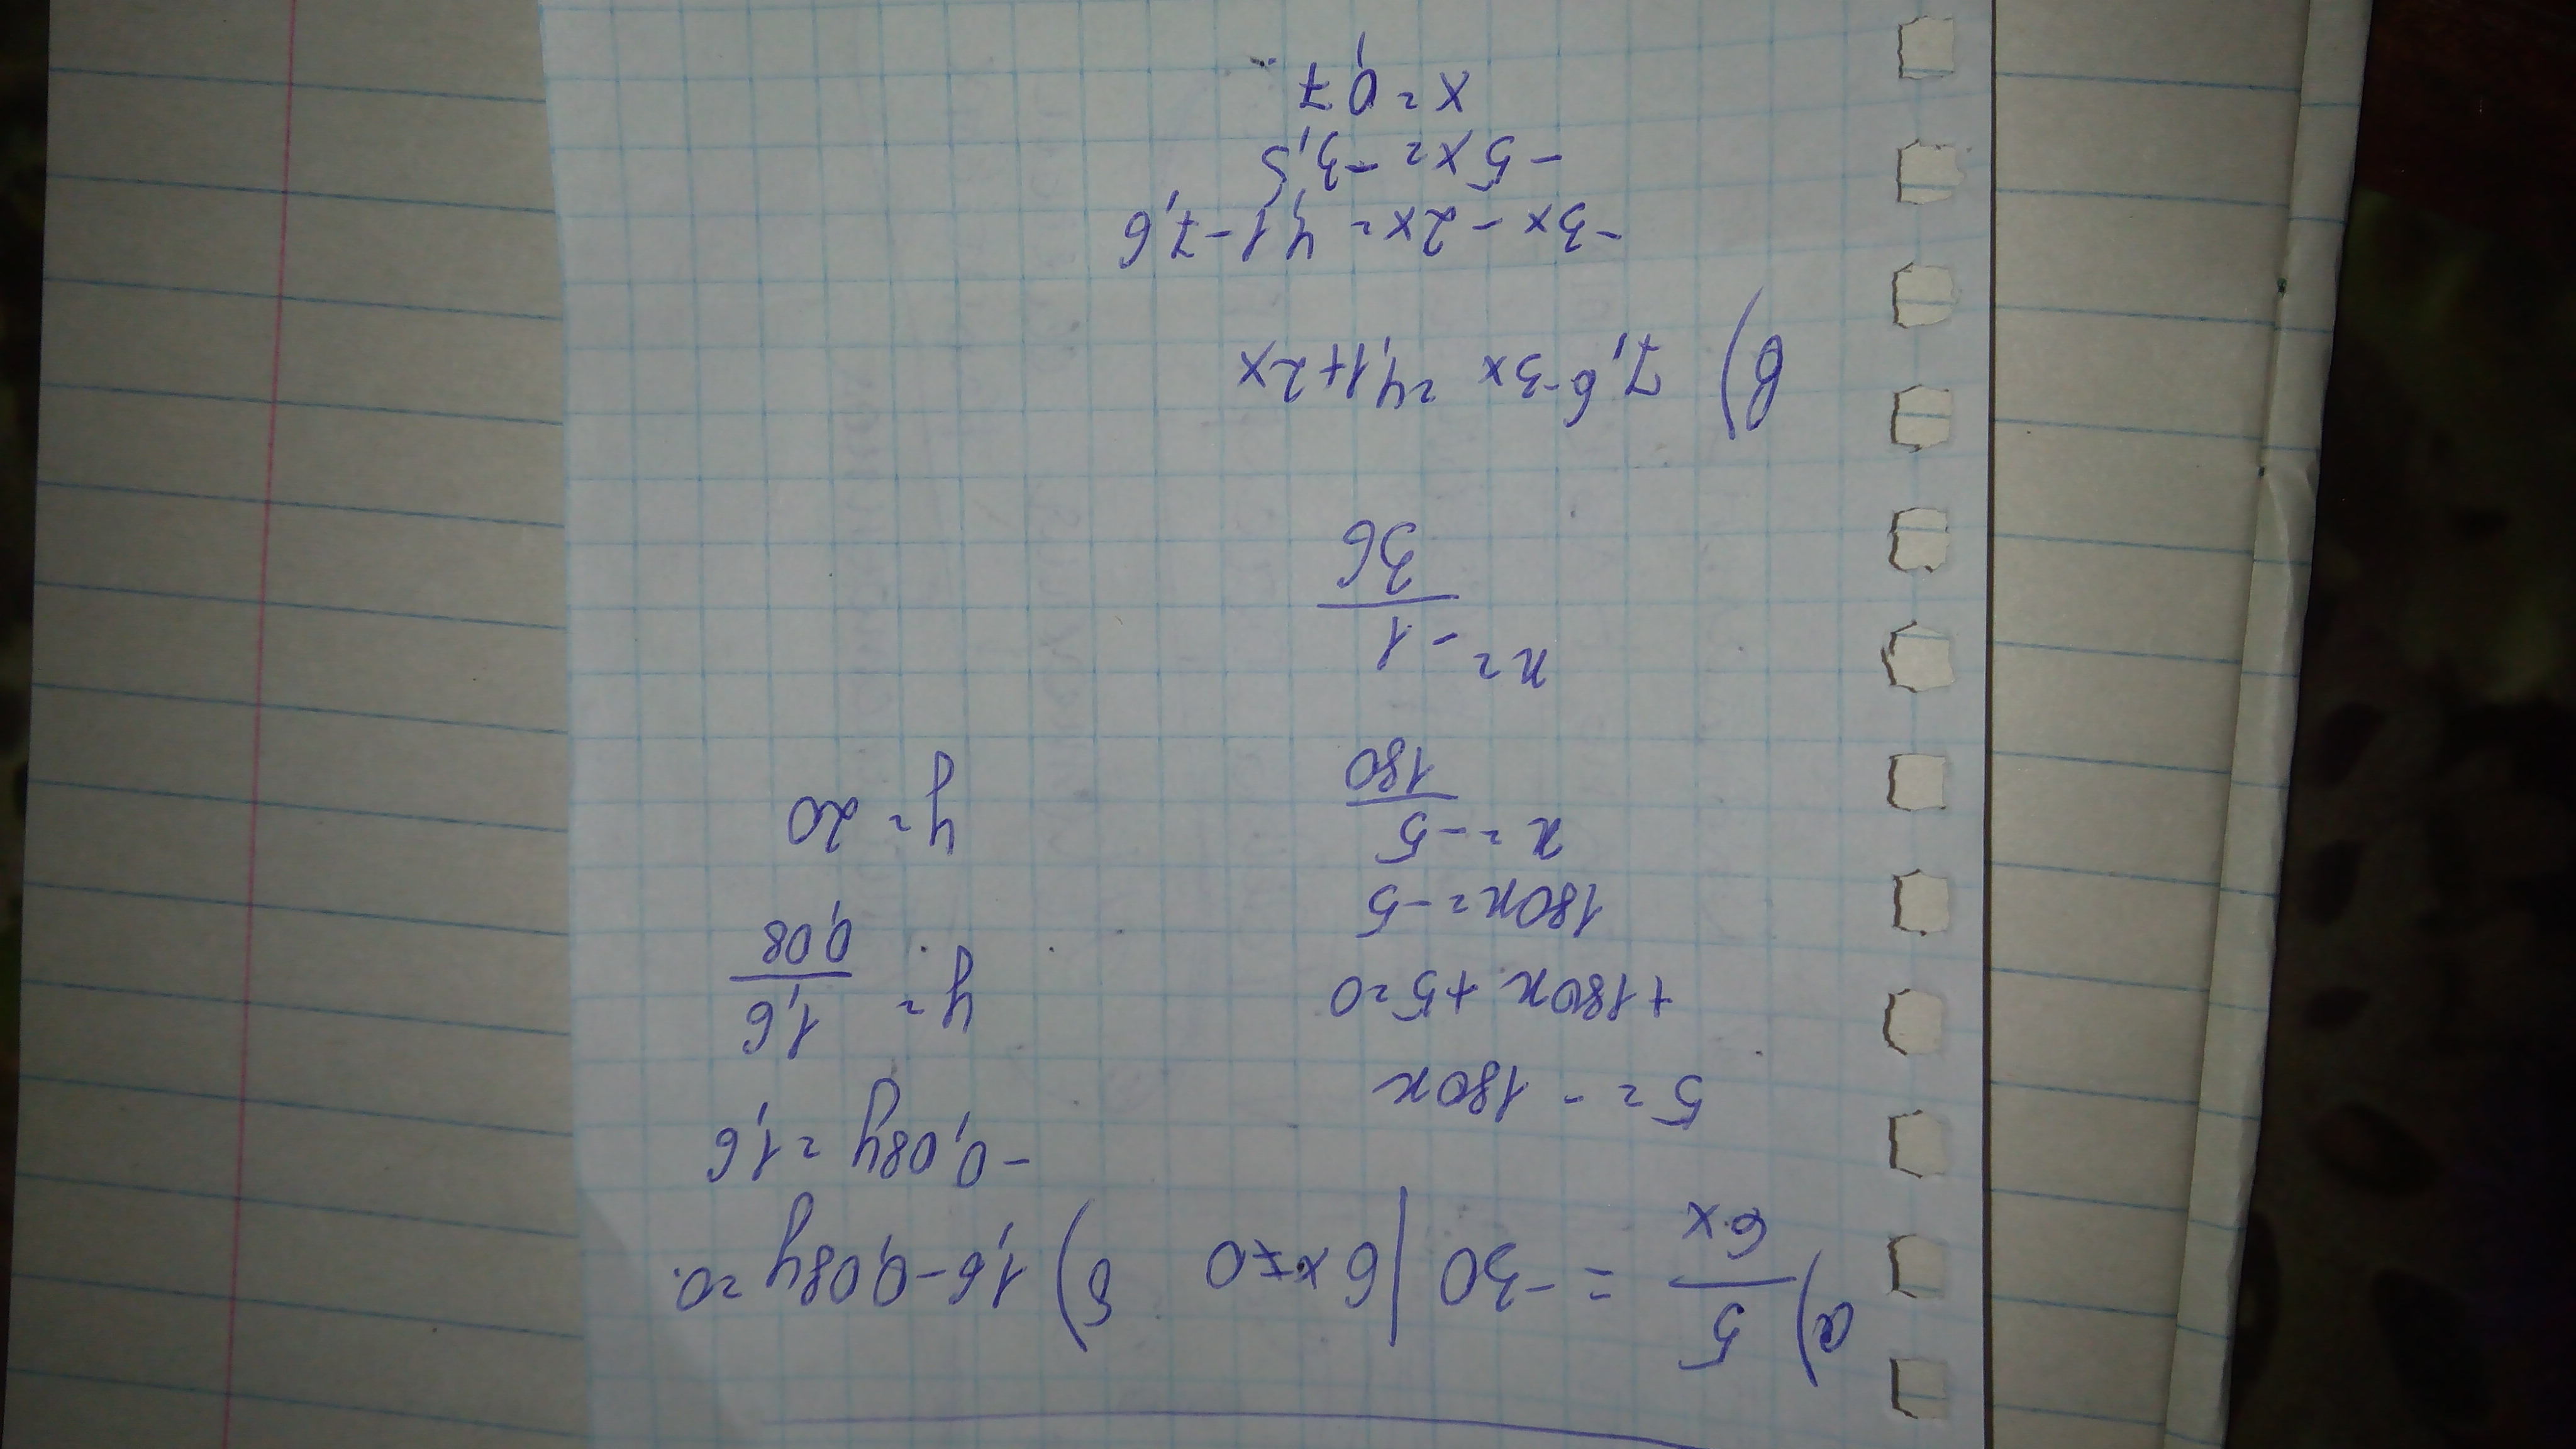 а) 5/6x = -30 | 6x≠0
5 = - 180x
+180x +5=0
180x = -5
x = -5/180
x = -1/36
б) 1,6-0,08y =0.
-0,08y = 1,6
y = 1,6/0,08
y = 20
в) 7,6-3x =4,1+2x
-3x - 2x = 4,1-7,6
-5x = -3,5
x = 0,7